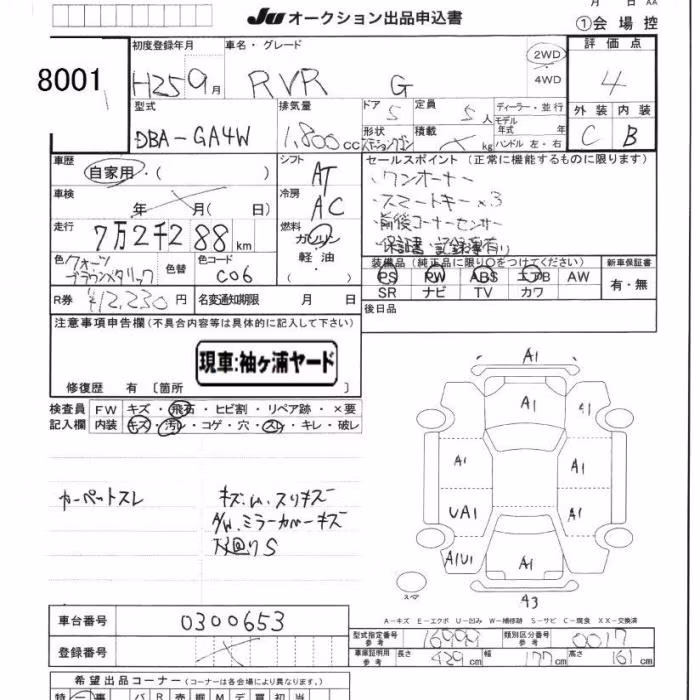 月 日 AA
JU オークション出品申込書
① 会場控
8001
初度登録年月
H25 9月
車名・グレード
RVR G
2WD
4WD
評価点
4
型式
DBA-GA4W
排気量
1,800cc
ドア
5
定員
5人
形状
ステーションワゴン
積載
kg
ディーラー・並行
モデル年式 年
ハンドル 左・右
外装 内装
C B
車歴
自家用・( )
シフト
AT
車検
年 月( 日)
冷房
AC
走行
7万2千288km
燃料
ガソリン
軽油
( )
色
クォーツブラウンメタリック
色替
色コード
C06
R券 ¥12,230円
名変通知期限 月 日
セールスポイント(正常に機能するものに限ります)
・ワンオーナー
・スマートキー×3
・前後コーナーセンサー
・保証書 記録簿有り
装備品(純正品に限り○をつけてください)
PS PW ABS エアB AW
SR ナビ TV カワ
新車保証書
有・無
後日品
注意事項申告欄(不具合内容等は具体的に記入して下さい)
現車:袖ヶ浦ヤード
修復歴 有 〔箇所
検査員記入欄
FW キズ・飛石・ヒビ割・リペア跡・×要
内装 キズ・汚レ・コゲ・穴・スレ・キレ・破レ
カーペットスレ
キズ.U.スリキズ
A/W.ミラーカバーキズ
下廻りS
A1
A1
A1
A1
A1
UA1
A1
A1U1
A1
A3
スペア
A-キズ E-エクボ U-凹み W-補修跡 S-サビ C-腐食 XX-交換済
車台番号 0300653
登録番号
型式指定番号 参考 16999
類別区分番号 参考 0017
車庫証明用 参考 長さ 429cm 幅 177cm 高さ 161cm
希望出品コーナー(コーナーは各会場により異なります。)